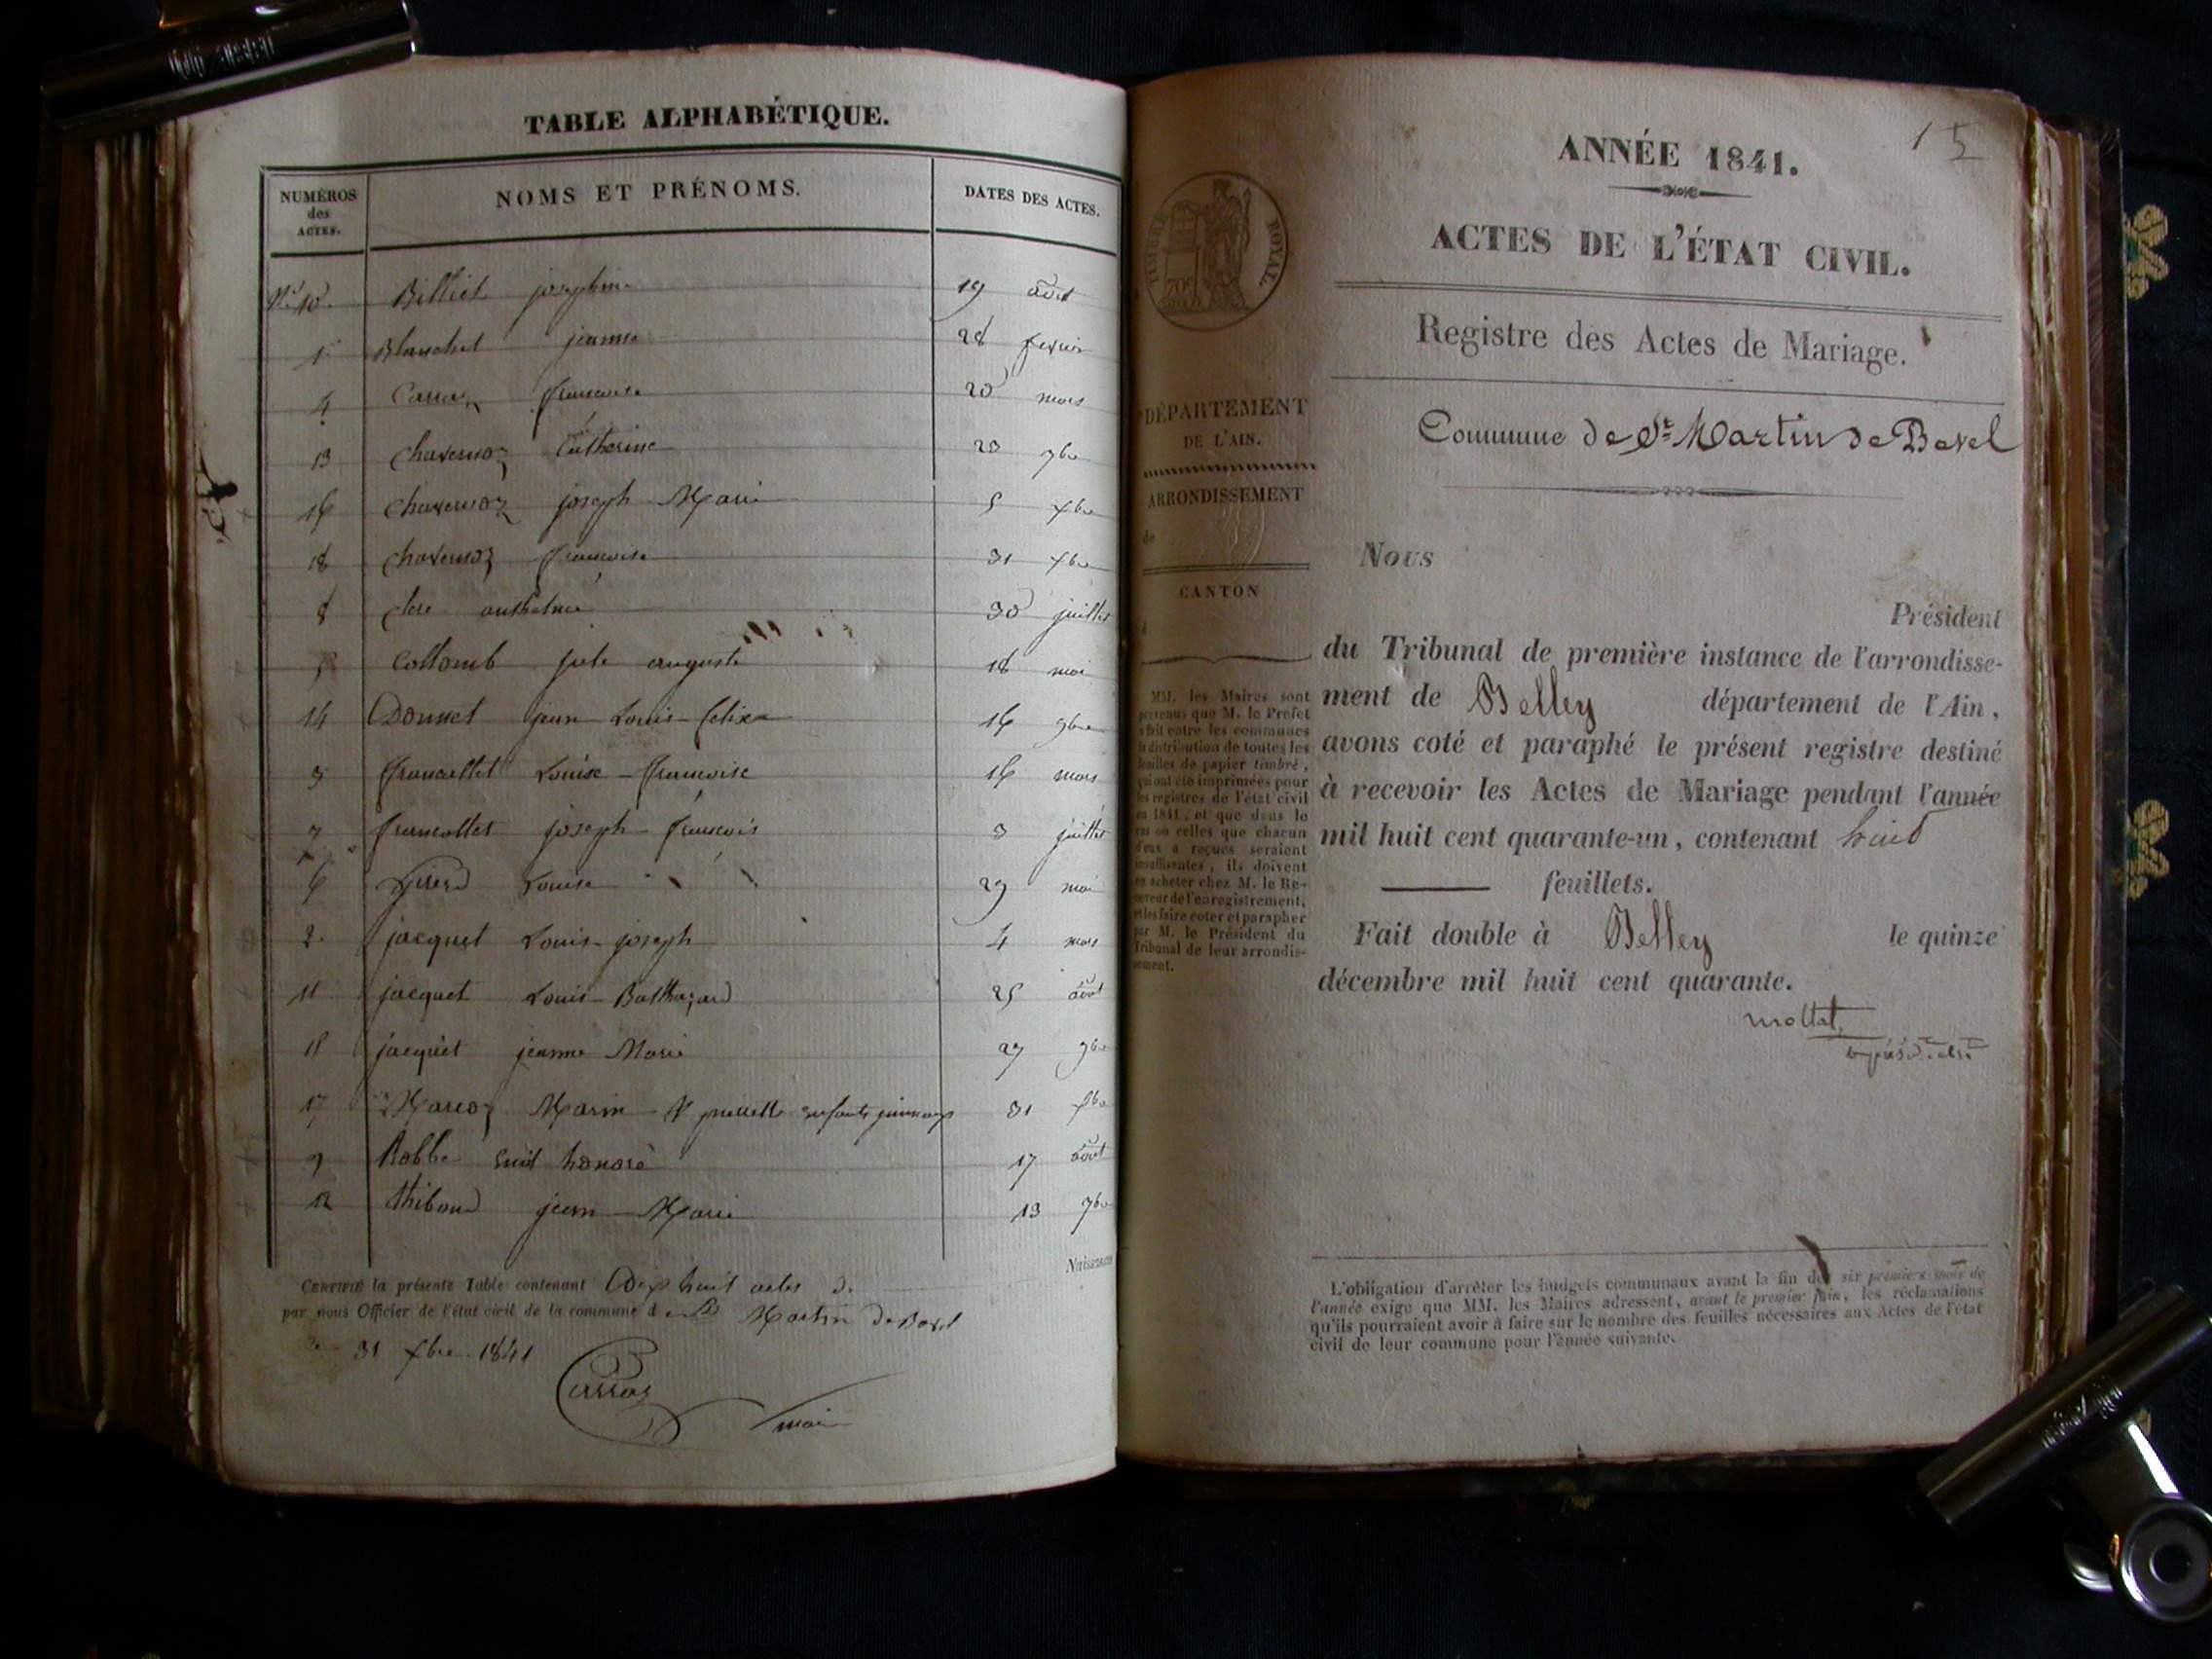 TABLE ALPHABÉTIQUE.
NUMÉROS des ACTES. NOMS ET PRÉNOMS. DATES DES ACTES.
N.º 10. Billiet josephine 19 août
1 Blanchet jeanne 28 fevrier
4 francoise 20 mars
13 Chavernoz Catherine 20 9bre
16 Chavernoz joseph Marie 5 xbre
18 Chavernoz francoise 31 xbre
8 Clere anthelme 30 juillet
5 Collomb jule auguste 18 mai
14 Donnet jean Louis felix 16 9bre
3 francollet Louise francoise 16 mars
7 francollet joseph francois 3 juillet
6 Louise 29 mai
2. jacquet Louis joseph 4 mars
11 jacquet Louis Balthazard 25 août
15 jacquet jeanne Marie 27 9bre
17 Marcoz Marin 31 xbre
9 Robbe honoré 17 août
12 thiboud jean Marie 13 9bre
Naissances
CERTIFIÉ la présente Table contenant Dix huit actes
par nous Officier de l'état civil de la commune de St Martin de Bavel
31 xbre 1841
maire
15
ANNÉE 1841.
ACTES DE L'ÉTAT CIVIL.
Registre des Actes de Mariage.
Commune de St Martin de Bavel
TIMBRE ROYAL.
DÉPARTEMENT
DE L'AIN.
ARRONDISSEMENT
de
CANTON
MM. les Maires sont
prévenus que M. le Préfet
a fait entre les communes
la distribution de toutes les
feuilles de papier timbré,
qui ont été imprimées pour
les registres de l'état civil
en 1841, et que dans le
cas où celles que chacun
d'eux a reçues seraient
insuffisantes, ils doivent
en acheter chez M. le Re-
ceveur de l'enregistrement,
et les faire coter et parapher
par M. le Président du
Tribunal de leur arrondis-
sement.
Nous
Président
du Tribunal de première instance de l'arrondisse-
ment de Belley département de l'Ain,
avons coté et paraphé le présent registre destiné
à recevoir les Actes de Mariage pendant l'année
mil huit cent quarante-un, contenant huit
feuillets.
Fait double à Belley le quinze
décembre mil huit cent quarante.
mollat
L'obligation d'arrêter les budgets communaux avant la fin des six premiers mois de
l'année exige que MM. les Maires adressent, avant le premier juin, les réclamations
qu'ils pourraient avoir à faire sur le nombre des feuilles nécessaires aux Actes de l'état
civil de leur commune pour l'année suivante.